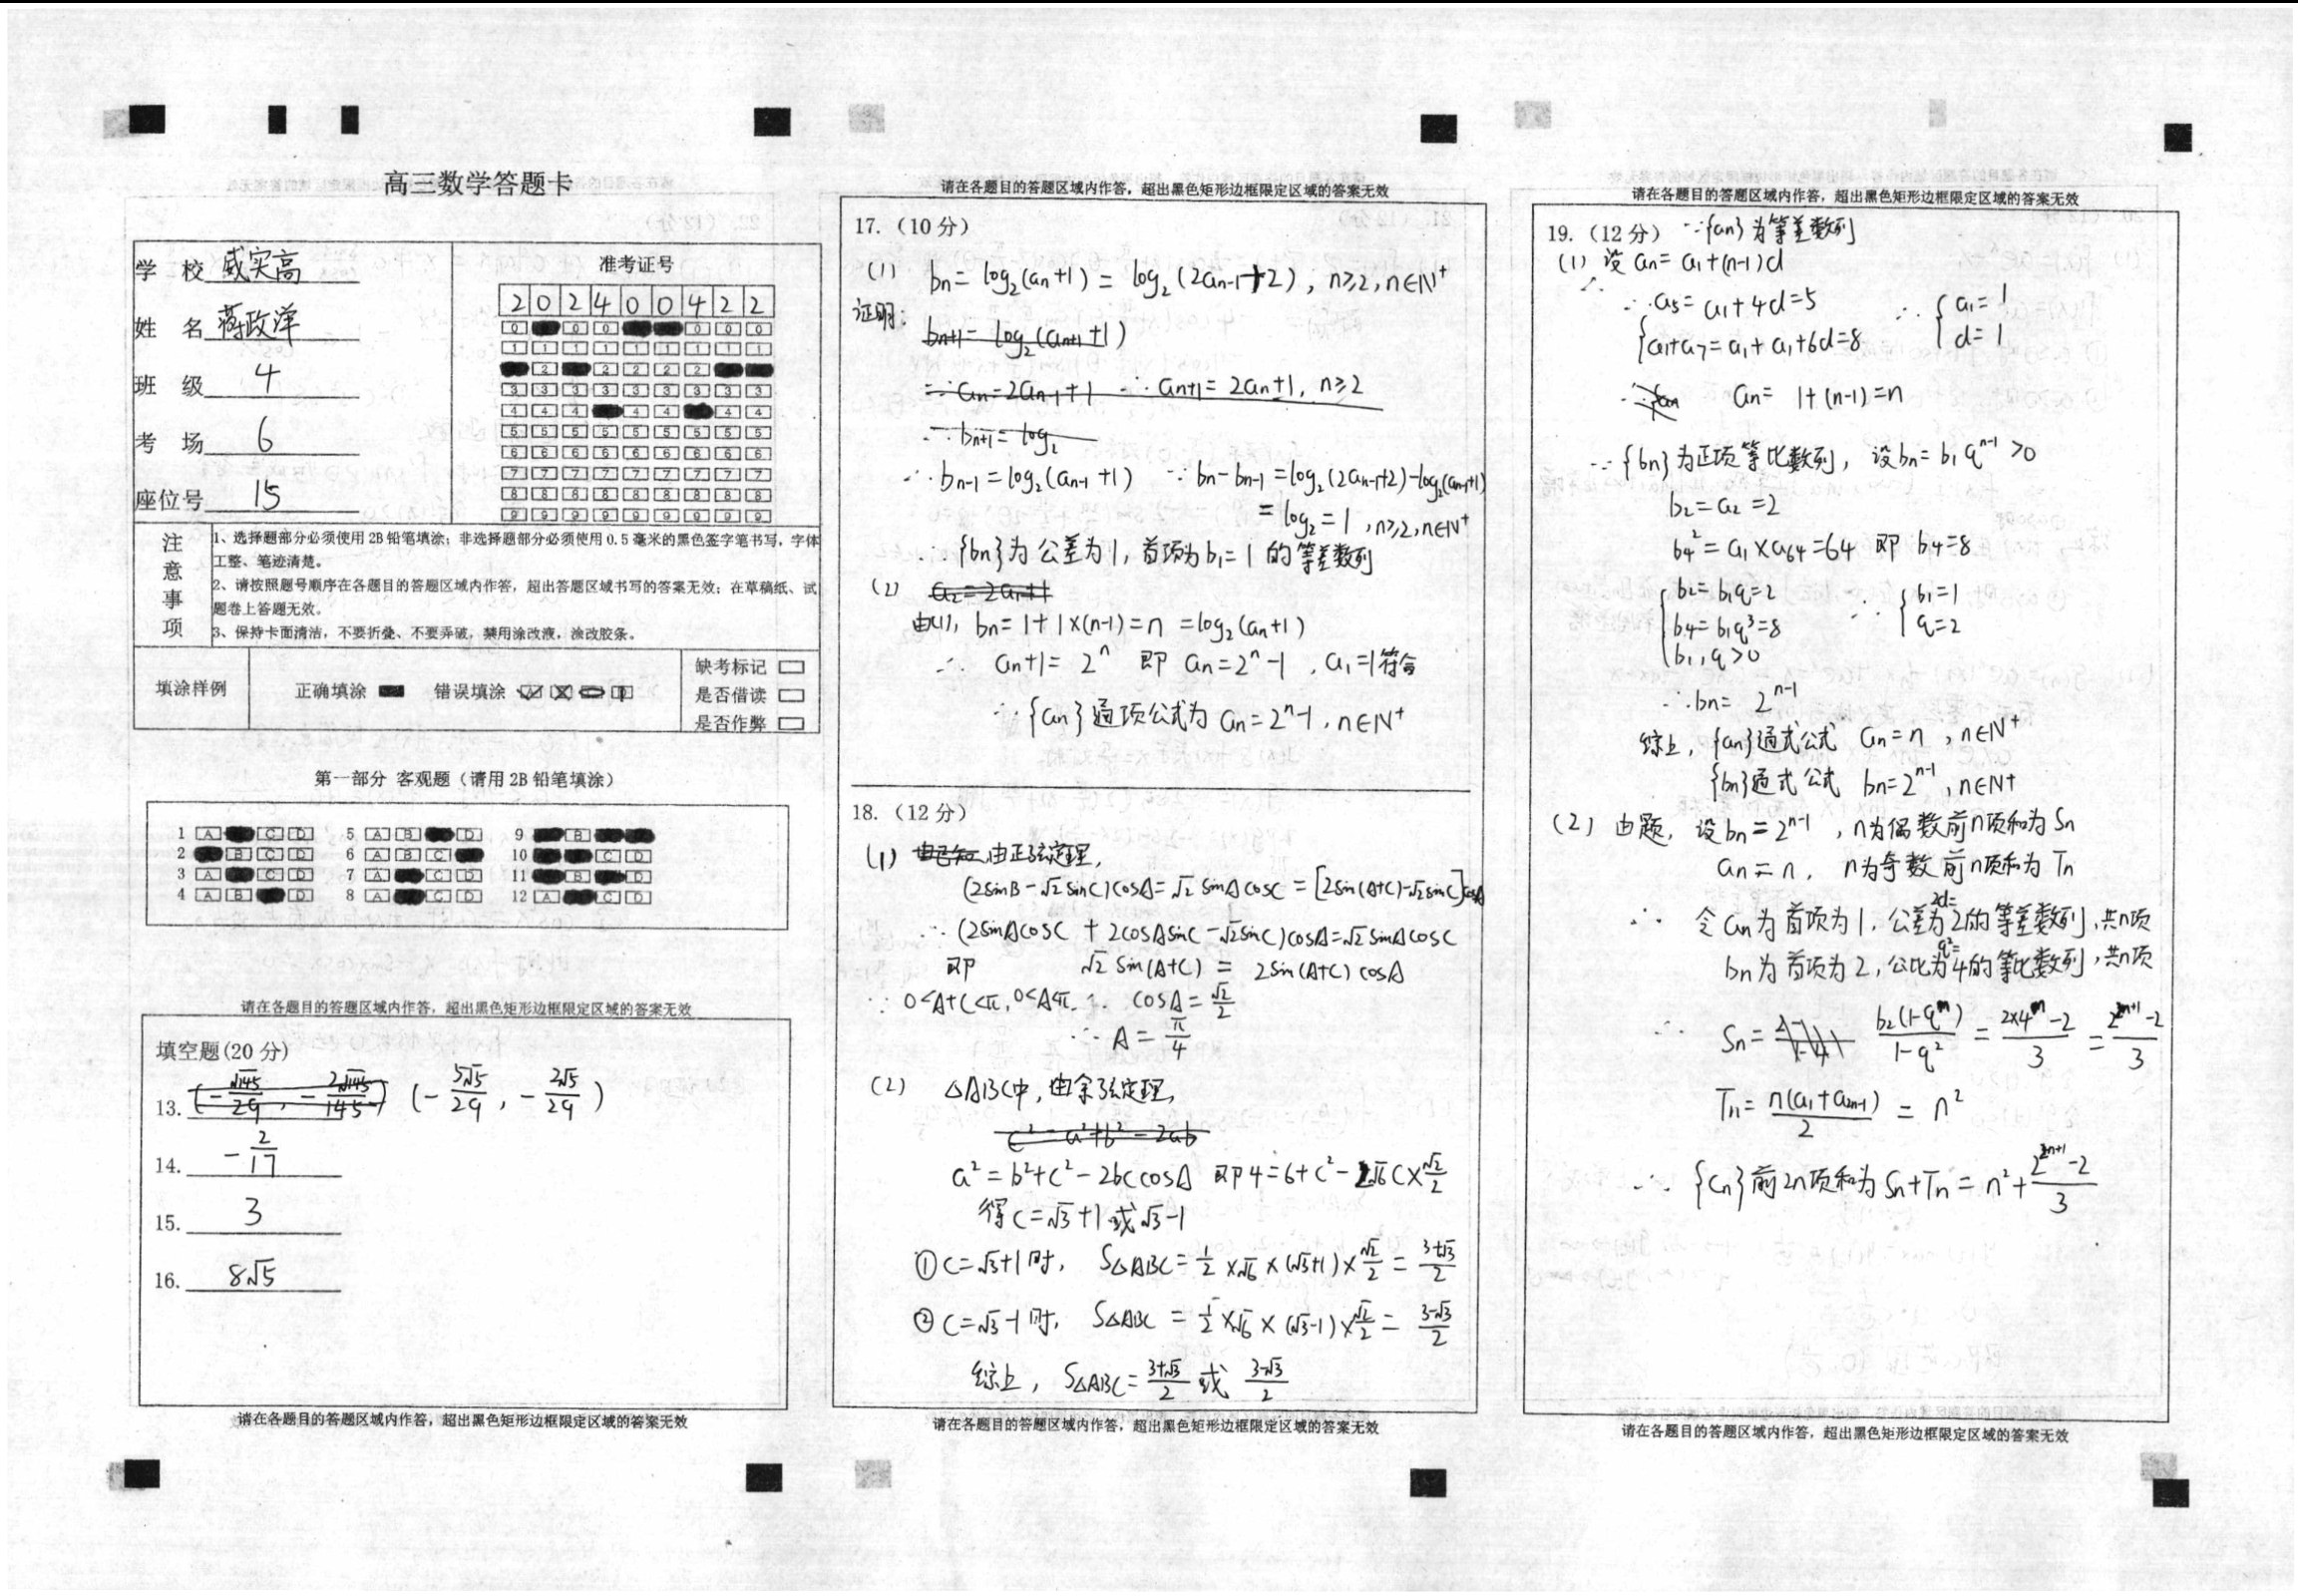 高三数学答题卡
学 校 威实高
姓 名 蒋政洋
班 级 4
考 场 6
座位号 15
准考证号
2 0 2 4 0 0 4 2 2
注意事项
1、选择题部分必须使用2B铅笔填涂；非选择题部分必须使用0.5毫米的黑色签字笔书写，字体工整、笔迹清楚。
2、请按照题号顺序在各题目的答题区域内作答，超出答题区域书写的答案无效；在草稿纸、试题卷上答题无效。
3、保持卡面清洁，不要折叠、不要弄破，禁用涂改液，涂改胶条。
填涂样例 正确填涂 错误填涂
缺考标记
是否借读
是否作弊
第一部分 客观题（请用2B铅笔填涂）
1 A C D 5 A B D 9 B
2 B C D 6 A B C 10 C D
3 A C D 7 A C D 11 B D
4 A B D 8 A C D 12 A C D
请在各题目的答题区域内作答，超出黑色矩形边框限定区域的答案无效
填空题(20分)
13. (-5√5/29, -2√5/29)
14. -2/17
15. 3
16. 8√5
请在各题目的答题区域内作答，超出黑色矩形边框限定区域的答案无效
请在各题目的答题区域内作答，超出黑色矩形边框限定区域的答案无效
17.（10分）
(1) bn = log₂(an+1) = log₂(2an-1+2), n≥2, n∈N⁺
证明:
bn+1 = log₂(an+1+1)
=∵an=2an-1+1 ∴an+1=2an+1, n≥2
∴bn+1=log₂
∴bn-1=log₂(an-1+1) ∵bn-bn-1=log₂(2an-1+2)-log₂(an-1+1)
=log₂=1, n≥2, n∈N⁺
∴{bn}为公差为1, 首项为b₁=1的等差数列
(2) a₂=2a₁+1
由(1), bn=1+1×(n-1)=n=log₂(an+1)
∴ an+1=2ⁿ 即 an=2ⁿ-1, a₁=1符合
∴{an}通项公式为an=2ⁿ-1, n∈N⁺
18.（12分）
(1) 由已知 由正弦定理,
(2sinB-√2sinC)cosA=√2sinAcosC=[2sin(A+C)-√2sinC]cosA
∴(2sinAcosC+2cosAsinC-√2sinC)cosA=√2sinAcosC
即 √2sin(A+C)=2sin(A+C)cosA
∵0<A+C<π, 0<A<π ∴ cosA=√2/2
∴A=π/4
(2) △ABC中, 由余弦定理,
c²=a²+b²-2ab
a²=b²+c²-2bccosA 即4=6+c²-2√6c×√2/2
得c=√3+1或√3-1
①c=√3+1时, S△ABC=1/2×√6×(√3+1)×√2/2=(3+√3)/2
②c=√3-1时, S△ABC=1/2×√6×(√3-1)×√2/2=(3-√3)/2
综上, S△ABC=(3+√3)/2或(3-√3)/2
请在各题目的答题区域内作答，超出黑色矩形边框限定区域的答案无效
请在各题目的答题区域内作答，超出黑色矩形边框限定区域的答案无效
19.（12分）∵{an}为等差数列
(1) 设an=a₁+(n-1)d
∴a₅=a₁+4d=5
{a₁+a₇=a₁+a₁+6d=8 ∴{a₁=1 d=1
an=1+(n-1)=n
∵{bn}为正项等比数列, 设bn=b₁qⁿ⁻¹>0
b₂=a₂=2
b₄²=a₁×a₆₄=64 即 b₄=8
{b₂=b₁q=2
b₄=b₁q³=8
b₁,q>0
∴{b₁=1 q=2
∴bn=2ⁿ⁻¹
综上, {an}通式公式 an=n, n∈N⁺
{bn}通式公式 bn=2ⁿ⁻¹, n∈N+
(2) 由题, 设bn=2ⁿ⁻¹, n为偶数前n项和为Sn
an=n, n为奇数前n项和为Tn
∴ 令an为首项为1, 公差为2d=2的等差数列, 共n项
bn为首项为2, 公比为q²=4的等比数列, 共n项
∴ Sn=b₂(1-q²ⁿ)/(1-q²)=(2×4ⁿ-2)/3=(2²ⁿ⁺¹-2)/3
Tn=n(a₁+a2n-1)/2=n²
∴{cn}前2n项和为Sn+Tn=n²+(2²ⁿ⁺¹-2)/3
请在各题目的答题区域内作答，超出黑色矩形边框限定区域的答案无效